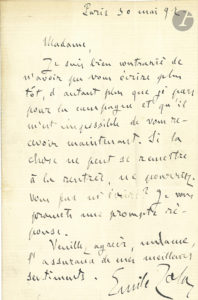 Paris 30 mai 92
Madame,
Je suis bien contrarié de
n'avoir pu vous écrire plus
tôt, d'autant plus que je pars
pour la campagne et qu'il
m'est impossible de vous re-
cevoir maintenant. Si la
chose ne peut se remettre
à la rentrée, ne pourriez-
vous pas m'écrire? Je vous
promets une prompte ré-
ponse.
Veuillez agréer, madame,
l'assurance de mes meilleurs
sentiments.
Emile Zola